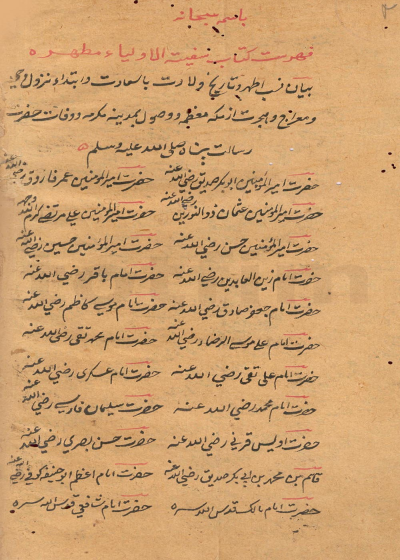 باسمه سبحانه
فهرست کتاب سفینة الاولیاء مطهره
بیان نسب اطهر و تاریخ ولادت با سعادت و ابتداء نزول وحی
و معراج و هجرت از مکه معظمه و وصول بمدینه مکرمه و وفات حضرت
رسالت پناه صلی الله علیه وسلم
حضرت امیر المؤمنین ابوبکر صدیق رضی الله عنه حضرت امیر المؤمنین عمر فاروق رضی الله عنه
حضرت امیر المؤمنین عثمان ذو النورین رضی الله عنه حضرت امیر المؤمنین علی مرتضی کرم الله وجهه
حضرت امیر المؤمنین حسن رضی الله عنه حضرت امیر المؤمنین حسین رضی الله عنه
حضرت امام زین العابدین رضی الله عنه حضرت امام باقر رضی الله عنه
حضرت امام جعفر صادق رضی الله عنه حضرت امام موسی کاظم رضی الله عنه
حضرت امام علی موسی الرضا رضی الله عنه حضرت امام محمد تقی رضی الله عنه
حضرت امام علی نقی رضی الله عنه حضرت امام عسکری رضی الله عنه
حضرت امام محمد رضی الله عنه حضرت سلیمان فارسی رضی الله عنه
حضرت اویس قرنی رضی الله عنه حضرت حسن بصری رضی الله عنه
قاسم بن محمد بن ابی بکر صدیق رضی الله عنه حضرت امام اعظم ابو حنیفه کوفی رضی الله عنه
حضرت امام مالک قدس الله سره حضرت امام شافعی قدس الله سره